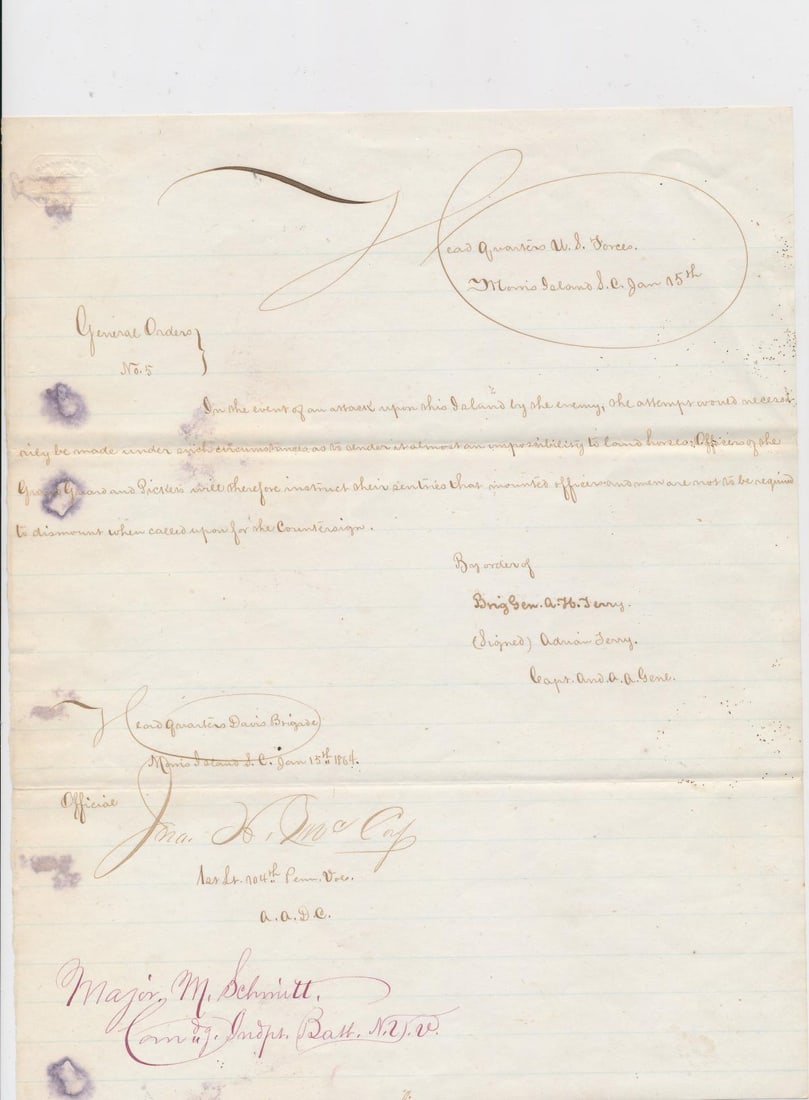 Head Quarters U. S. Forces.
Morris Island S. C. Jan 15th
General Orders
No. 5
In the event of an attack upon this Island by the enemy, the attempt would necessa-
rily be made under such circumstances as to render it almost an impossibility to land horses; Officers of the
Grand Guard and Pickets will therefore instruct their sentries that mounted officers and men are not to be required
to dismount when called upon for the Countersign.
By order of
Brig Gen. A. H. Terry.
(Signed) Adrian Terry.
Capt. And. A. A. Genl.
Head Quarters Davis Brigade
Morris Island S. C. Jan 15th 1864.
Official
Jno. H. Coy
1st Lt. 104th Penn. Vols.
A. A. D. C.
Major. M. Schmitt.
Comdg. Indpt. Batt. N.Y.V.